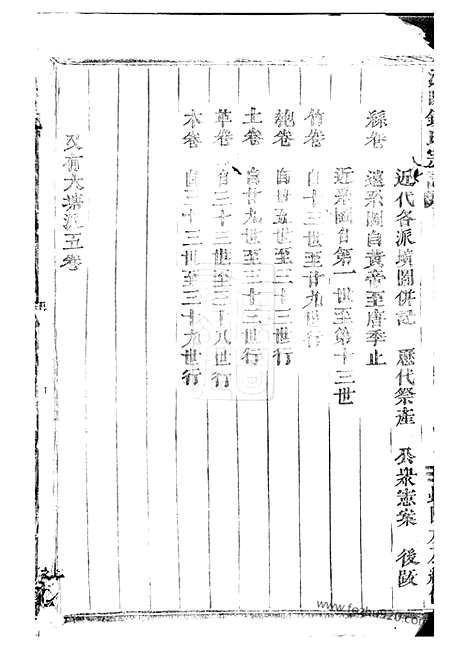 近代各派墳圖併記　歷代祭產　公衆憲案　後跋
絲卷　遠系圖自黃帝至唐季止
近系圖自第一世至第十三世
竹卷　自十三世至廿九世行
匏卷　自廿五世至三十三世行
土卷　自廿九世至三十三世行
革卷　自三十三世至三十八世行
木卷　自三十三世至三十九世行
又有大墳派五卷
www.fezhu920.com